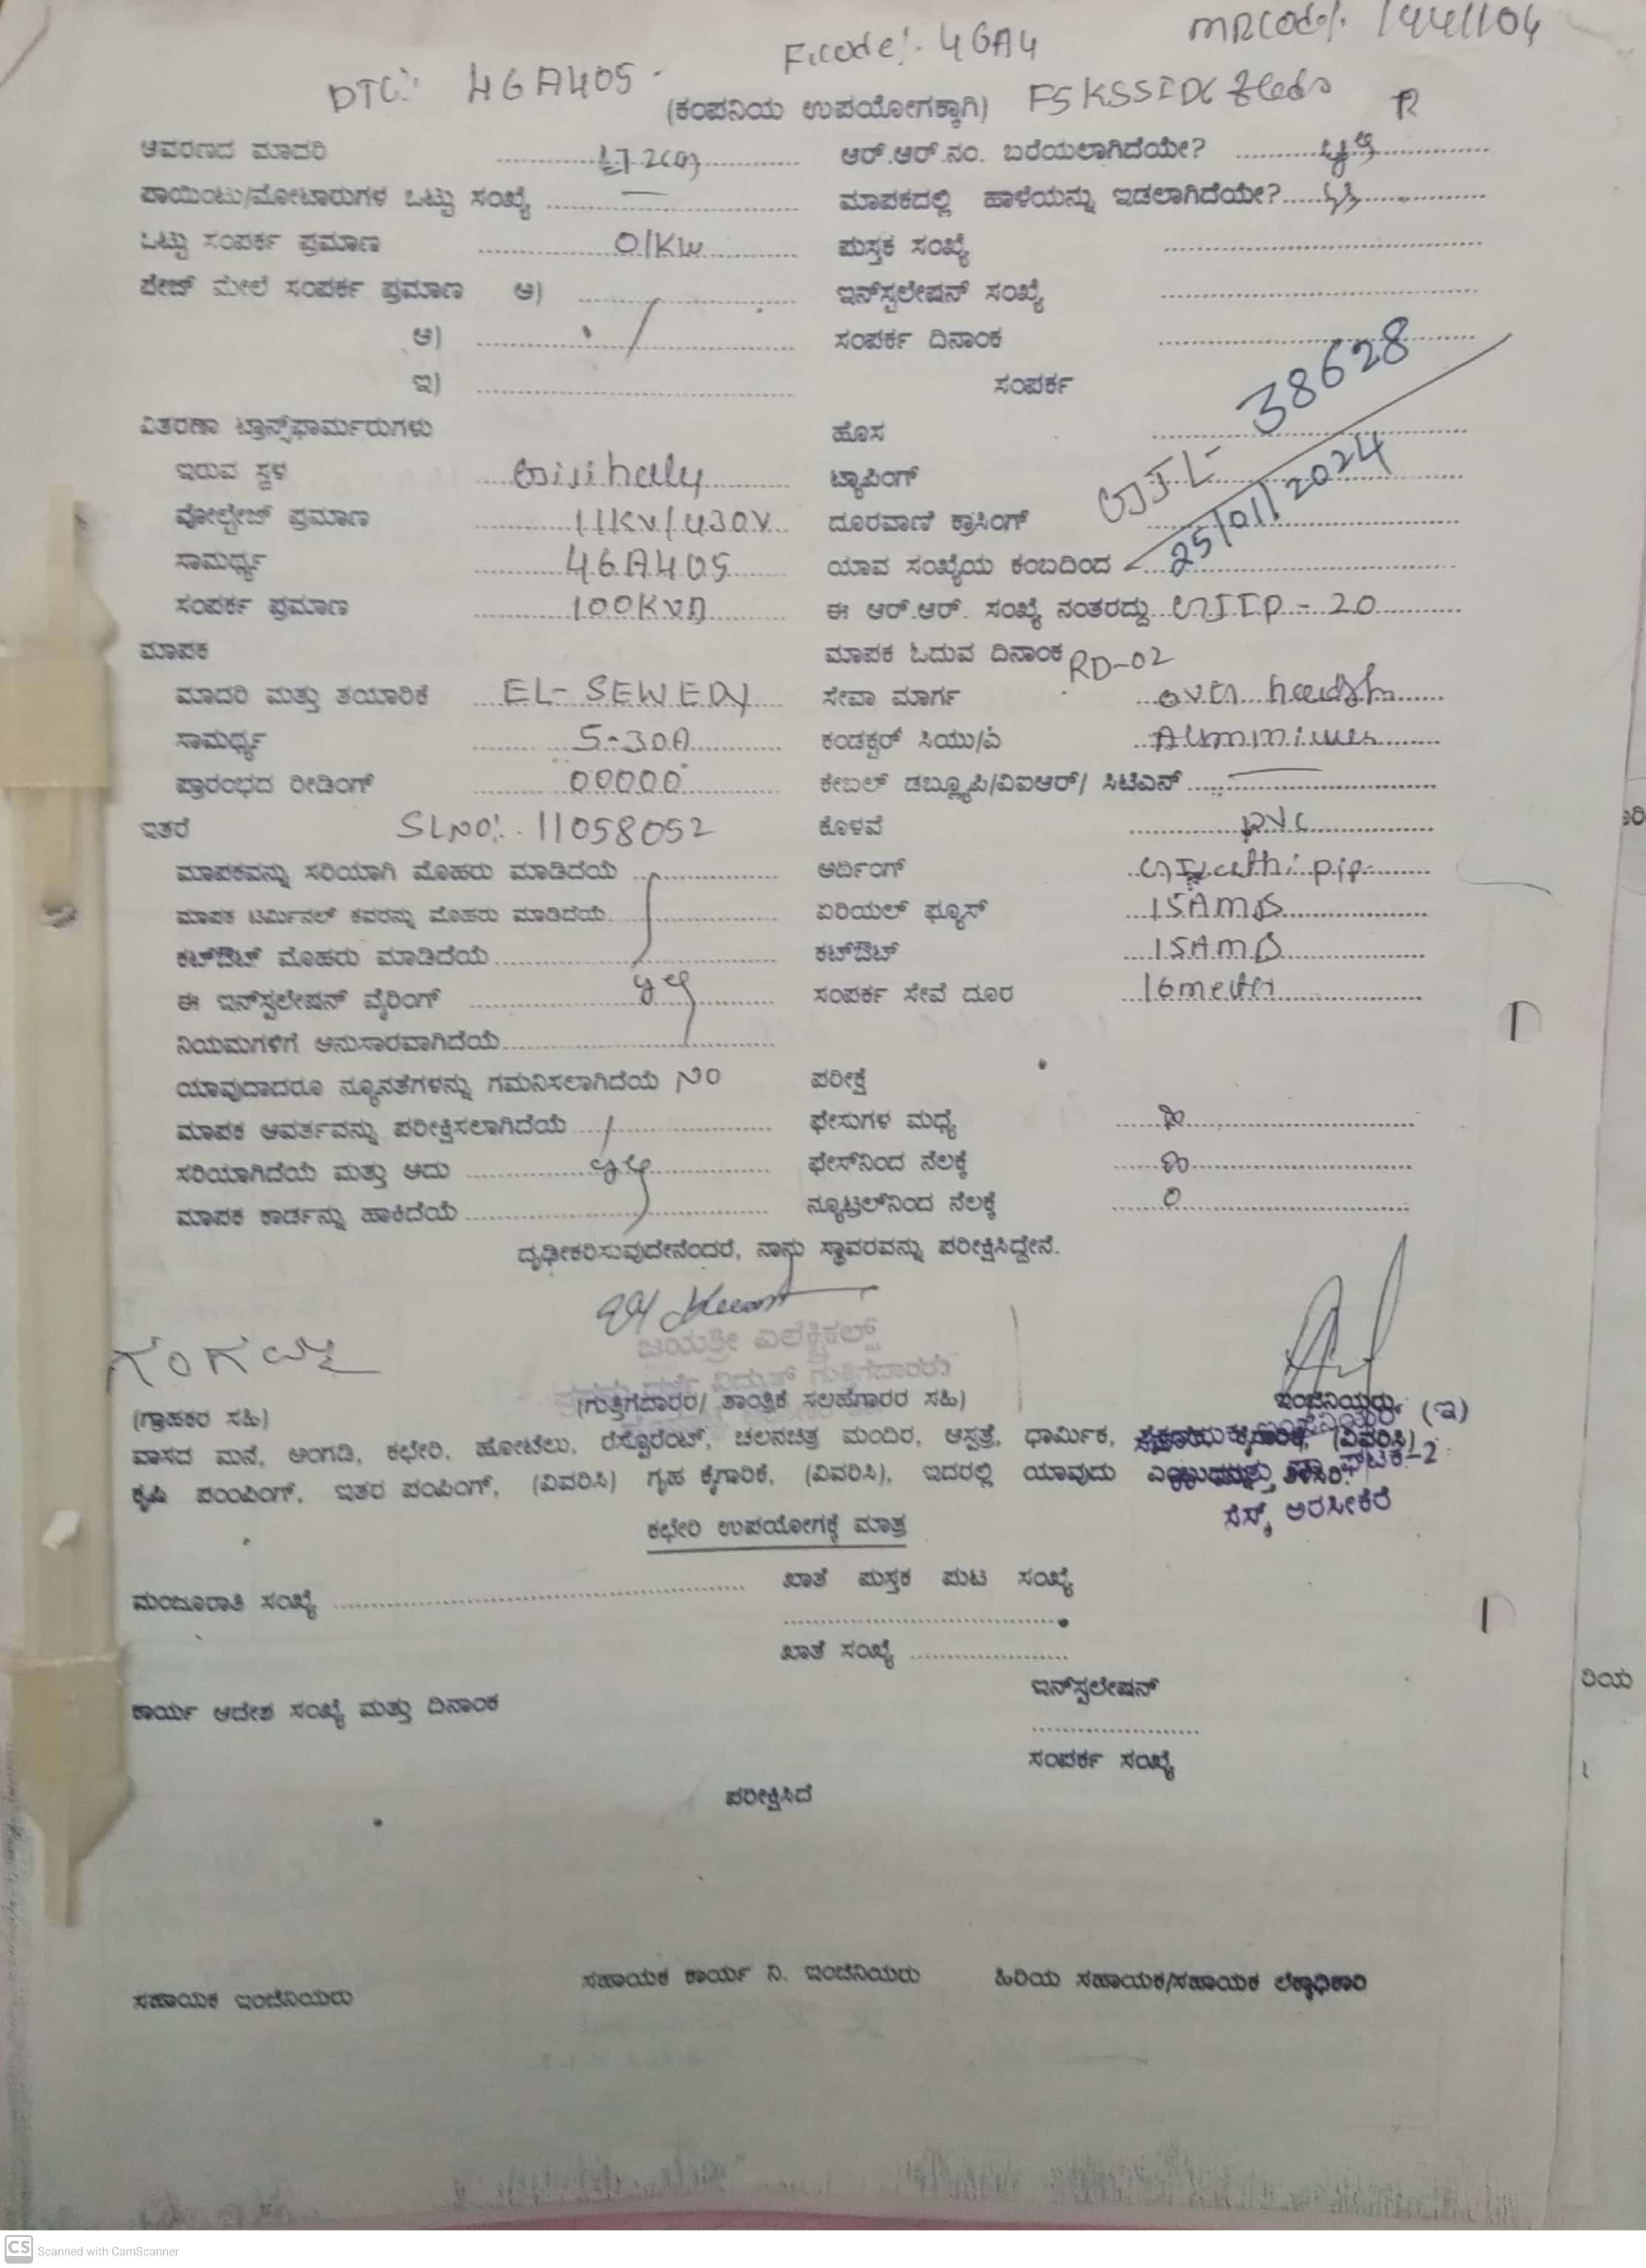 F.code:- 4GA4 MRCode:- 1441104
DTC:- 4GA405 (ಕಂಪನಿಯ ಉಪಯೋಗಕ್ಕಾಗಿ) F5 KSSIDC
ಆವರಣದ ಮಾದರಿ ಆರ್.ಆರ್.ನಂ. ಬರೆಯಲಾಗಿದೆಯೇ?
ಪಾಯಿಂಟು/ಮೋಟಾರುಗಳ ಒಟ್ಟು ಸಂಖ್ಯೆ ಮಾಪಕದಲ್ಲಿ ಹಾಳೆಯನ್ನು ಇಡಲಾಗಿದೆಯೇ?
ಒಟ್ಟು ಸಂಪರ್ಕ ಪ್ರಮಾಣ 01KW ಪುಸ್ತಕ ಸಂಖ್ಯೆ
ಪೇಜ್ ಮೇಲೆ ಸಂಪರ್ಕ ಪ್ರಮಾಣ ಅ) ಇನ್‌ಸ್ಟಲೇಷನ್ ಸಂಖ್ಯೆ
ಆ) ಸಂಪರ್ಕ ದಿನಾಂಕ
ಇ) ಸಂಪರ್ಕ
38628
ವಿತರಣಾ ಟ್ರಾನ್ಸ್‌ಫಾರ್ಮರುಗಳು ಹೊಸ
ಇರುವ ಸ್ಥಳ ಟ್ಯಾಪಿಂಗ್
ವೋಲ್ಟೇಜ್ ಪ್ರಮಾಣ 11KV/430V ದೂರವಾಣಿ ಕ್ರಾಸಿಂಗ್
ಸಾಮರ್ಥ್ಯ 4GA405 ಯಾವ ಸಂಖ್ಯೆಯ ಕಂಬದಿಂದ 25/01/2024
ಸಂಪರ್ಕ ಪ್ರಮಾಣ 100KVA ಈ ಆರ್.ಆರ್. ಸಂಖ್ಯೆ ನಂತರದ್ದು - 20
ಮಾಪಕ ಮಾಪಕ ಓದುವ ದಿನಾಂಕ RD-02
ಮಾದರಿ ಮತ್ತು ತಯಾರಿಕೆ EL-SEWEDY ಸೇವಾ ಮಾರ್ಗ over
ಸಾಮರ್ಥ್ಯ 5-30A ಕಂಡಕ್ಟರ್ ಸಿಯು/ಎ
ಪ್ರಾರಂಭದ ರೀಡಿಂಗ್ 00000 ಕೇಬಲ್ ಡಬ್ಲ್ಯೂಪಿ/ವಿಐಆರ್/ ಸಿಟಿಎಸ್
ಇತರೆ SLNO:- 11058052 ಕೊಳವೆ PVC
ಮಾಪಕವನ್ನು ಸರಿಯಾಗಿ ಮೊಹರು ಮಾಡಿದೆಯೆ ಆರ್ದಿಂಗ್
ಮಾಪಕ ಟರ್ಮಿನಲ್ ಕವರನ್ನು ಮೊಹರು ಮಾಡಿದೆಯೆ ಏರಿಯಲ್ ಫ್ಯೂಸ್ 15AMP
ಕಟ್‌ಔಟ್ ಮೊಹರು ಮಾಡಿದೆಯೆ ಕಟ್‌ಔಟ್ 15AMP
ಈ ಇನ್‌ಸ್ಟಲೇಷನ್ ವೈರಿಂಗ್ ಸಂಪರ್ಕ ಸೇವೆ ದೂರ 16meter
ನಿಯಮಗಳಿಗೆ ಅನುಸಾರವಾಗಿದೆಯೆ
ಯಾವುದಾದರೂ ನ್ಯೂನತೆಗಳನ್ನು ಗಮನಿಸಲಾಗಿದೆಯೆ NO ಪರೀಕ್ಷೆ
ಮಾಪಕ ಆವರ್ತವನ್ನು ಪರೀಕ್ಷಿಸಲಾಗಿದೆಯೆ ಫೇಸುಗಳ ಮಧ್ಯೆ
ಸರಿಯಾಗಿದೆಯೆ ಮತ್ತು ಅದು ಫೇಸ್‌ನಿಂದ ನೆಲಕ್ಕೆ
ಮಾಪಕ ಕಾರ್ಡನ್ನು ಹಾಕಿದೆಯೆ ನ್ಯೂಟ್ರಲ್‌ನಿಂದ ನೆಲಕ್ಕೆ 0
ದೃಢೀಕರಿಸುವುದೇನೆಂದರೆ, ನಾನು ಸ್ಥಾವರವನ್ನು ಪರೀಕ್ಷಿಸಿದ್ದೇನೆ.
ಜಯಶ್ರೀ ಎಲೆಕ್ಟ್ರಿಕಲ್ಸ್
ವಿದ್ಯುತ್ ಗುತ್ತಿಗೆದಾರರು
(ಗ್ರಾಹಕರ ಸಹಿ) (ಗುತ್ತಿಗೆದಾರರ/ ತಾಂತ್ರಿಕ ಸಲಹೆಗಾರರ ಸಹಿ) ಇಂಜಿನಿಯರು (ಇ)
ವಾಸದ ಮನೆ, ಅಂಗಡಿ, ಕಛೇರಿ, ಹೋಟೆಲು, ರೆಸ್ಟೊರೆಂಟ್, ಚಲನಚಿತ್ರ ಮಂದಿರ, ಆಸ್ಪತ್ರೆ, ಧಾರ್ಮಿಕ, ಕೈಗಾರಿಕೆ, (ವಿವರಿಸಿ)
ಕೃಷಿ ಪಂಪಿಂಗ್, ಇತರ ಪಂಪಿಂಗ್, (ವಿವರಿಸಿ) ಗೃಹ ಕೈಗಾರಿಕೆ, (ವಿವರಿಸಿ), ಇದರಲ್ಲಿ ಯಾವುದು ಘಟಕ-2
ಸೆಸ್ಕ್, ಅರಸೀಕೆರೆ
ಕಛೇರಿ ಉಪಯೋಗಕ್ಕೆ ಮಾತ್ರ
ಮಂಜೂರಾತಿ ಸಂಖ್ಯೆ ಖಾತೆ ಪುಸ್ತಕ ಪುಟ ಸಂಖ್ಯೆ
ಖಾತೆ ಸಂಖ್ಯೆ
ಇನ್‌ಸ್ಟಲೇಷನ್
ಕಾರ್ಯ ಆದೇಶ ಸಂಖ್ಯೆ ಮತ್ತು ದಿನಾಂಕ
ಸಂಪರ್ಕ ಸಂಖ್ಯೆ
ಪರೀಕ್ಷಿಸಿದೆ
ಸಹಾಯಕ ಇಂಜಿನಿಯರು ಸಹಾಯಕ ಕಾರ್ಯ ನಿ. ಇಂಜಿನಿಯರು ಹಿರಿಯ ಸಹಾಯಕ/ಸಹಾಯಕ ಲೆಕ್ಕಾಧಿಕಾರಿ
CS Scanned with CamScanner